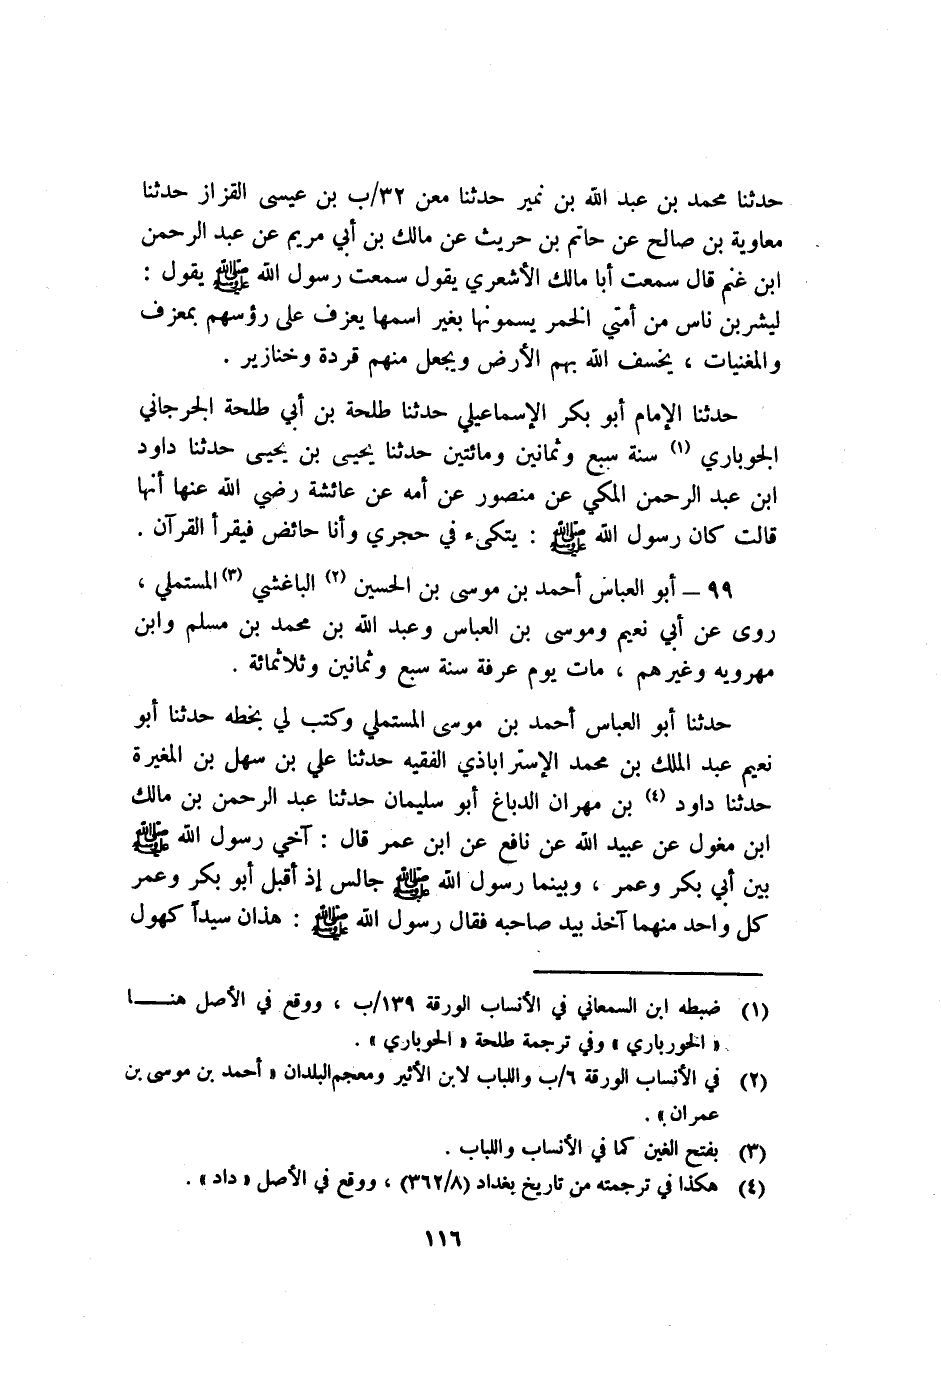 حدثنا محمد بن عبد الله بن نمير حدثنا معن ٣٢/ب بن عيسى القزاز حدثنا
معاوية بن صالح عن حاتم بن حريث عن مالك بن أبي مريم عن عبد الرحمن
ابن غنم قال سمعت أبا مالك الأشعري يقول سمعت رسول الله ﷺ يقول :
ليشربن ناس من أمتي الخمر يسمونها بغير اسمها يعزف على رؤسهم بمعزف
والمغنيات ، يخسف الله بهم الأرض ويجعل منهم قردة وخنازير .
حدثنا الإمام أبو بكر الإسماعيلي حدثنا طلحة بن أبي طلحة الجرجاني
الجوباري (١) سنة سبع وثمانين ومائتين حدثنا يحيى بن يحيى حدثنا داود
ابن عبد الرحمن المكي عن منصور عن أمه عن عائشة رضي الله عنها أنها
قالت كان رسول الله ﷺ : يتكىء في حجري وأنا حائض فيقرأ القرآن .
٩٩ — أبو العباس أحمد بن موسى بن الحسين (٢) الباغشي (٣) المستملي ،
روى عن أبي نعيم وموسى بن العباس وعبد الله بن محمد بن مسلم وابن
مهرويه وغيرهم ، مات يوم عرفة سنة سبع وثمانين وثلاثمائة .
حدثنا أبو العباس أحمد بن موسى المستملي وكتب لي بخطه حدثنا أبو
نعيم عبد الملك بن محمد الإستراباذي الفقيه حدثنا علي بن سهل بن المغيرة
حدثنا داود (٤) بن مهران الدباغ أبو سليمان حدثنا عبد الرحمن بن مالك
ابن مغول عن عبيد الله عن نافع عن ابن عمر قال : آخي رسول الله ﷺ
بين أبي بكر وعمر ، وبينما رسول الله ﷺ جالس إذ أقبل أبو بكر وعمر
كل واحد منهما آخذ بيد صاحبه فقال رسول الله ﷺ : هذان سيداً كهول
(١) ضبطه ابن السمعاني في الأنساب الورقة ١٣٩/ب ، ووقع في الأصل هنا
« الخورباري » وفي ترجمة طلحة « الحوباري » .
(٢) في الأنساب الورقة ٦/ب واللباب لابن الأثير ومعجم البلدان « أحمد بن موسى بن
عمران » .
(٣) بفتح الغين كما في الأنساب واللباب .
(٤) هكذا في ترجمته من تاريخ بغداد (٣٦٢/٨) ، ووقع في الأصل « داد » .
١١٦